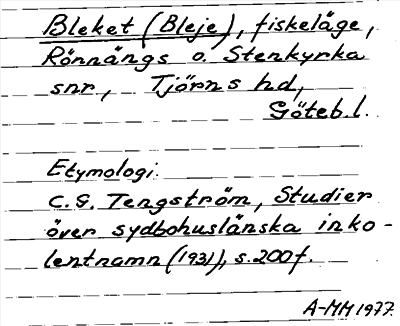 Bleket (Bleje), fiskeläge,
Rönnängs o. Stenkyrka
snr, Tjörns hd,
Göteb.l.
Etymologi.
C.G. Tengström, Studier
över sydbohuslänska inko-
lentnamn (1931), s.200f.
A-MM 1977.